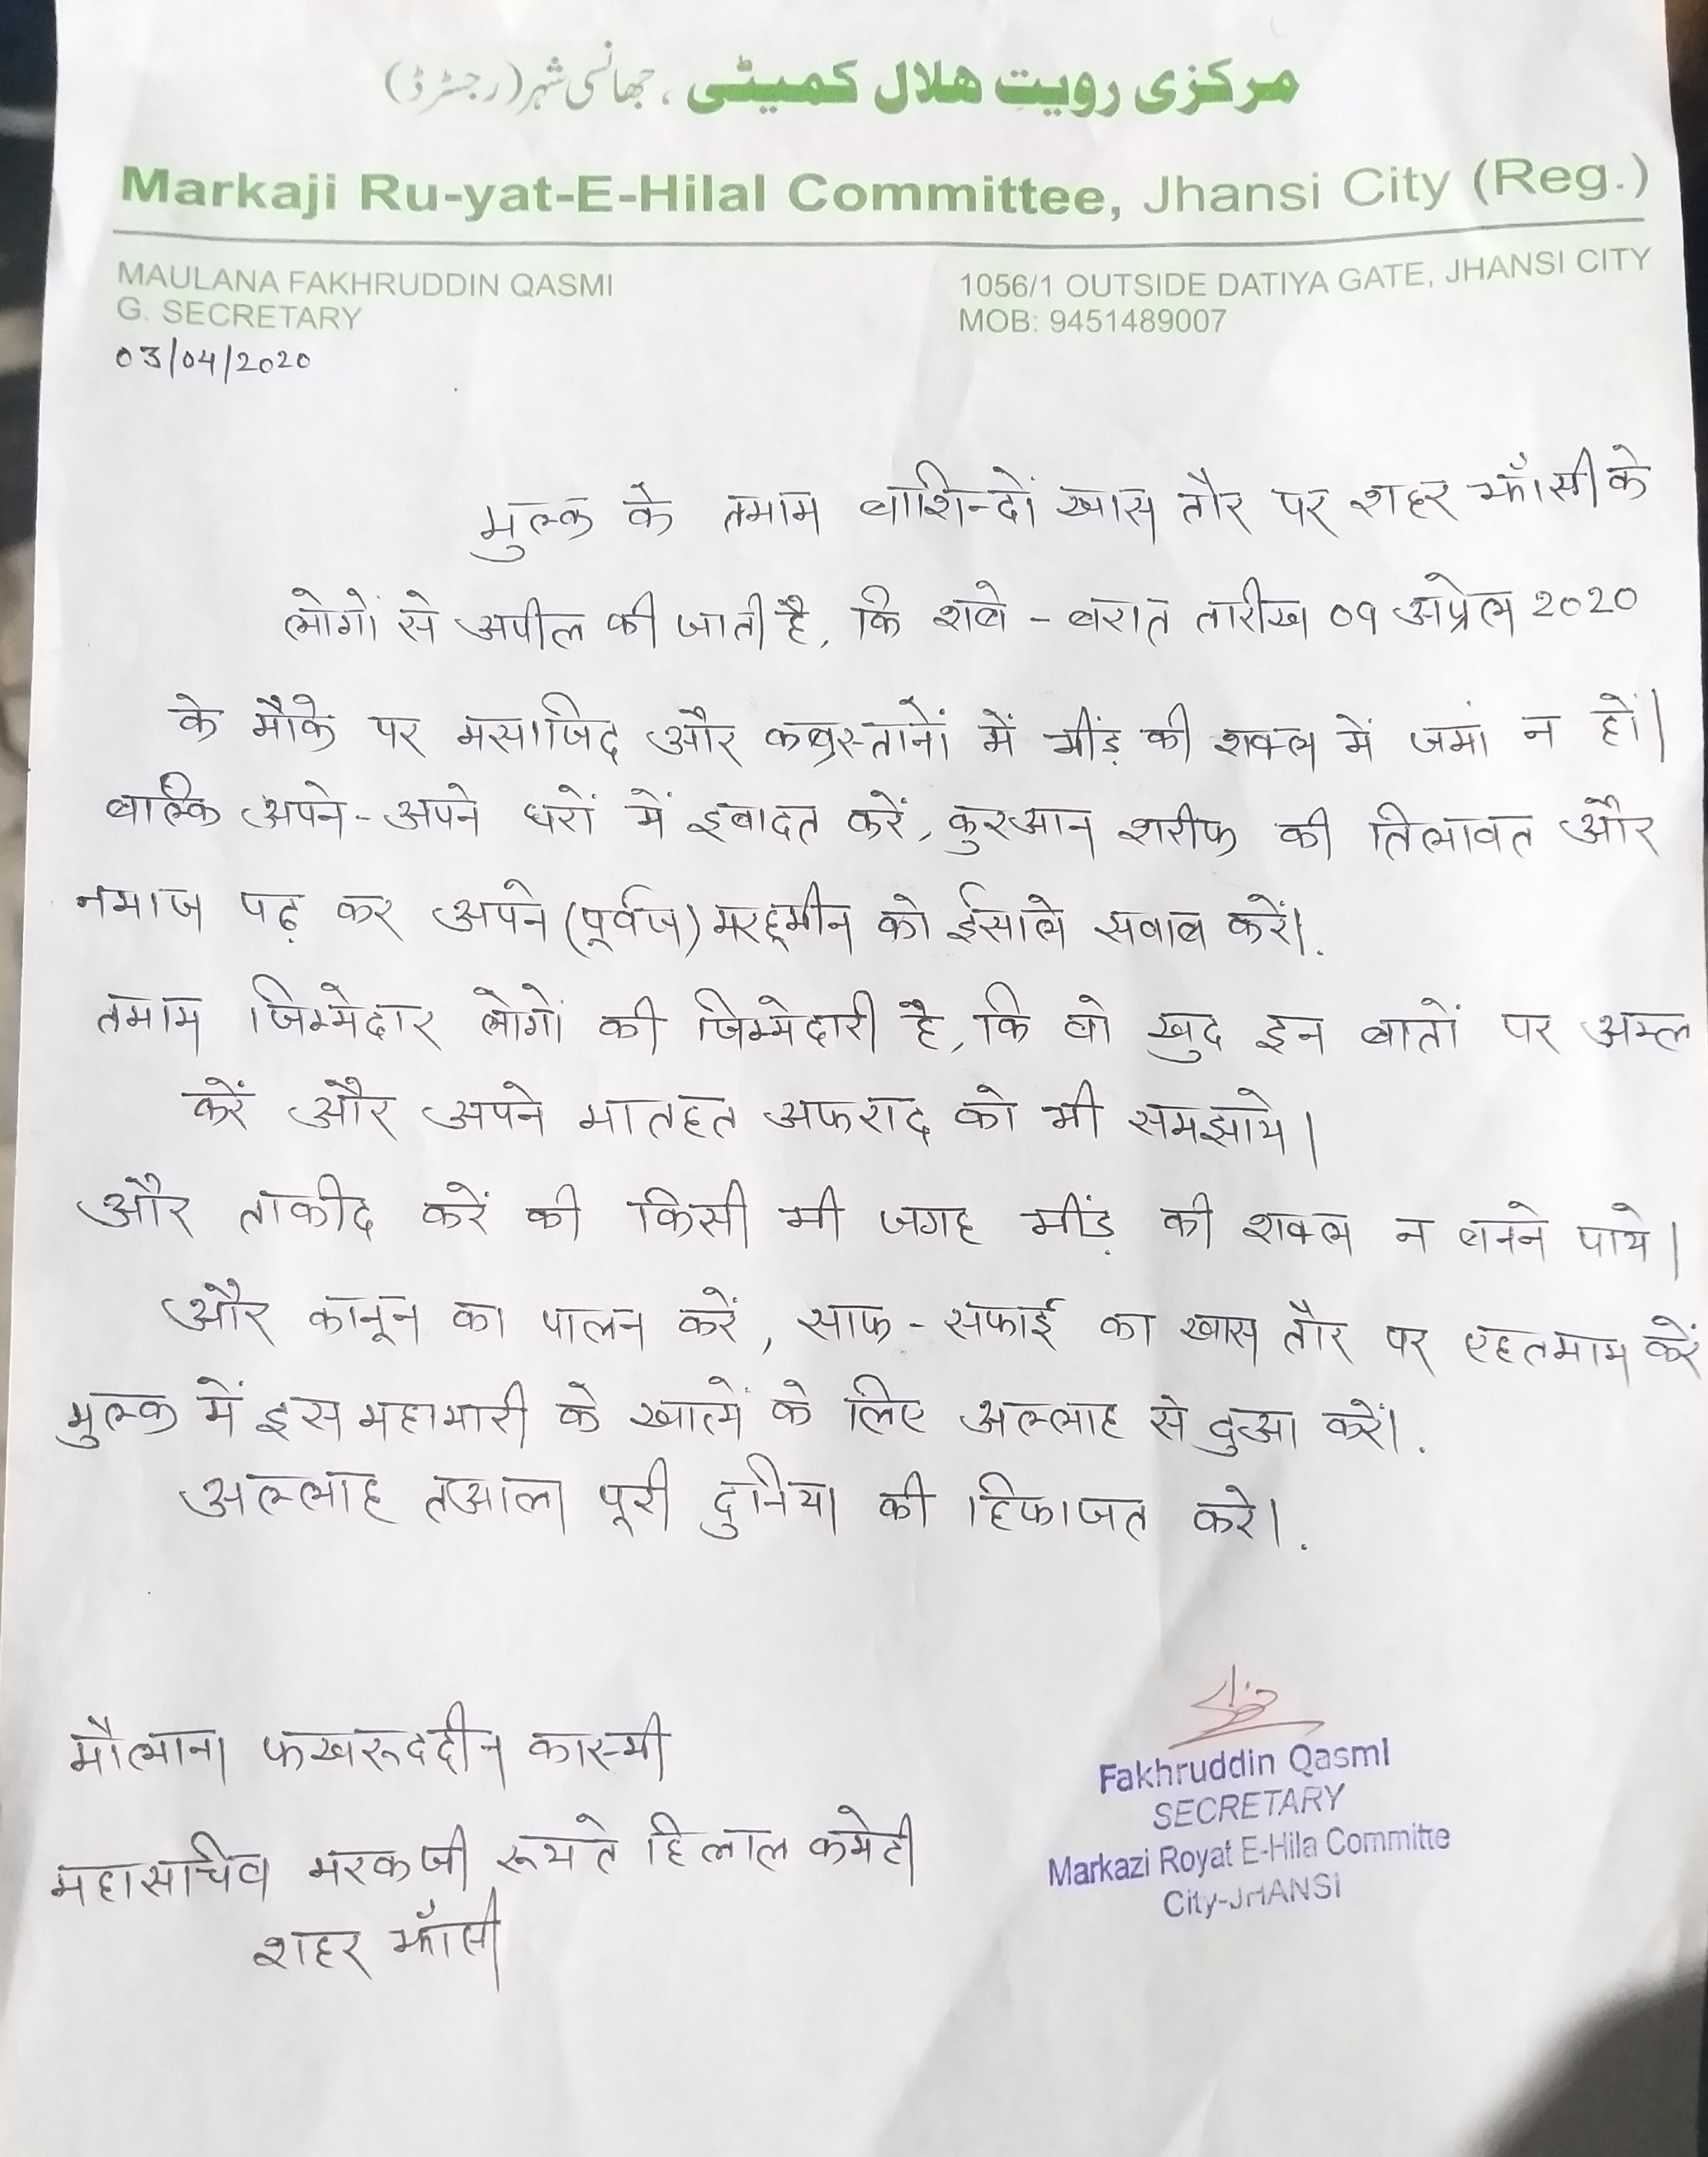 مرکزی رویت ھلال کمیٹی ، جھانسی شہر (رجسٹرڈ)
Markaji Ru-yat-E-Hilal Committee, Jhansi City (Reg.)
MAULANA FAKHRUDDIN QASMI
G. SECRETARY
1056/1 OUTSIDE DATIYA GATE, JHANSI CITY
MOB: 9451489007
03/04/2020
मुल्क के तमाम बाशिन्दों खास तौर पर शहर झाँसी के
लोगों से अपील की जाती है, कि शबे - बरात तारीख 09 अप्रेल 2020
के मौके पर मसाजिद और कब्रस्तानों में भींड़ की शक्ल में जमां न हों|
बल्कि अपने-अपने घरों में इबादत करें, कुरआन शरीफ की तिलावत और
नमाज पढ़ कर अपने (पूर्वज) मरहूमीन को ईसाले सवाब करें।.
तमाम जिम्मेदार लोगों की जिम्मेदारी है, कि वो खुद इन बातों पर अम्ल
करें और अपने मातहत अफराद को भी समझाये|
और ताकीद करें की किसी भी जगह भींड़ की शक्ल न बनने पाये|
और कानून का पालन करें, साफ - सफाई का खास तौर पर एहतमाम करें
मुल्क में इस महामारी के खात्में के लिंए अल्लाह से दुआ करें।.
अल्लाह तआला पूरी दुनिया की हिफाजत करे।.
मौलाना फखरूददीन कास्मी
महासचिव मरकजी रूयते हिलाल कमेटी
शहर झाँसी
Fakhruddin QasmI
SECRETARY
Markazi Royat E-Hila Committe
City-JHANSI